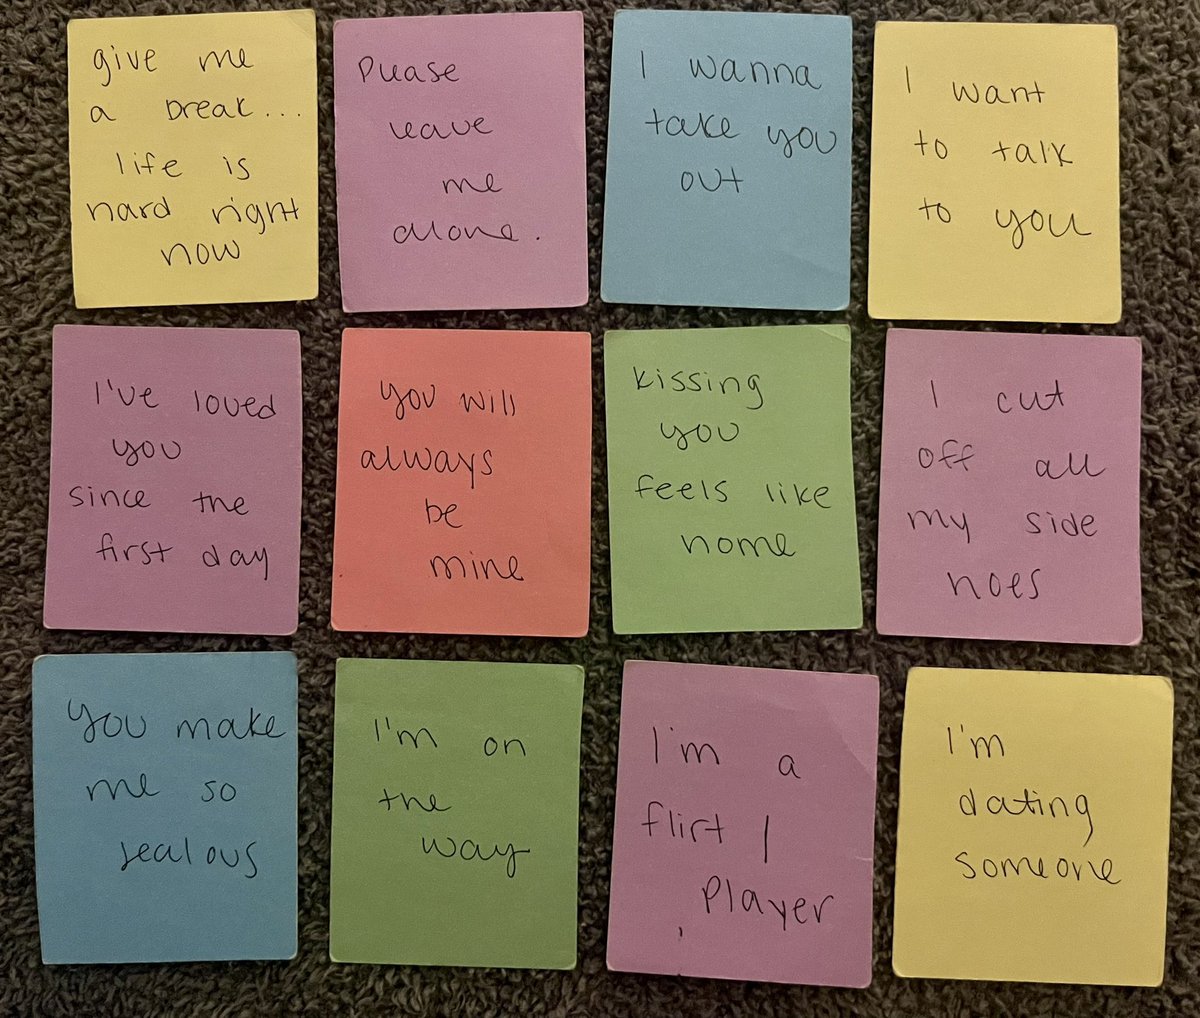 give me
a break...
life is
hard right
now
Please
leave
me
alone.
I wanna
take you
out
I want
to talk
to you
I've loved
you
since the
first day
you will
always
be
mine
kissing
you
feels like
home
I cut
off all
my side
hoes
you make
me so
jealous
I'm on
the
way
I'm a
flirt /
player
I'm
dating
someone